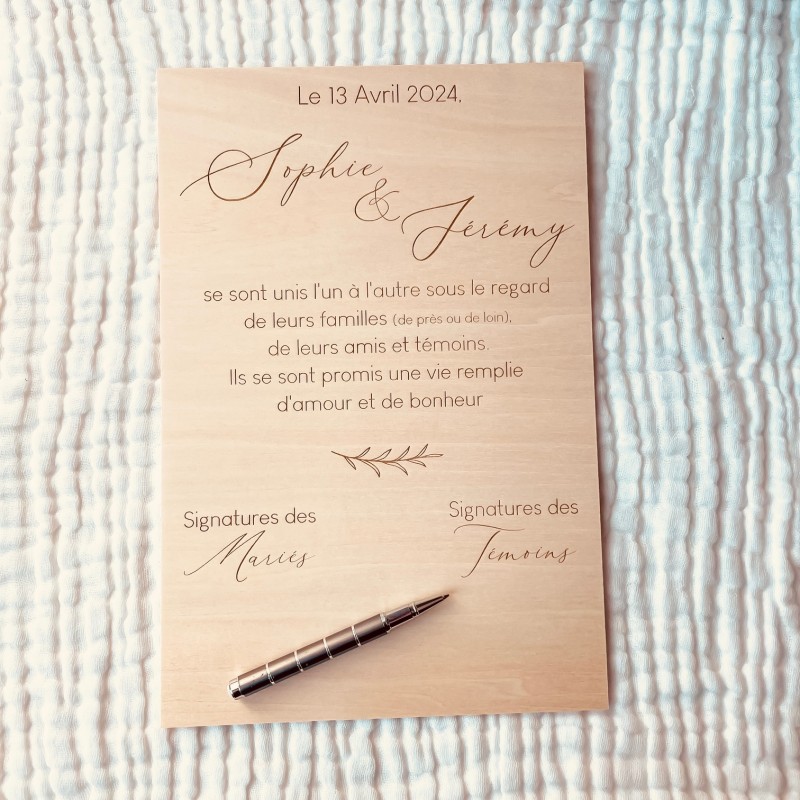 Le 13 Avril 2024,
Sophie
&
Jérémy
se sont unis l'un à l'autre sous le regard
de leurs familles (de près ou de loin),
de leurs amis et témoins.
Ils se sont promis une vie remplie
d'amour et de bonheur
Signatures des
Mariés
Signatures des
Témoins